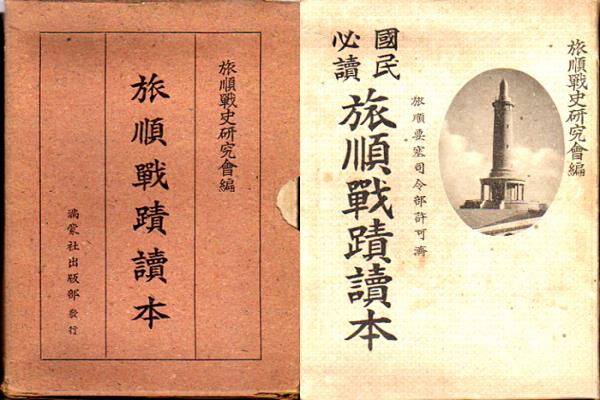 旅順戰史硏究會編
旅順戰蹟讀本
滿蒙社出版部 發行
旅順戰史硏究會編
旅順要塞司令部許可濟
國民必讀
旅順戰蹟讀本